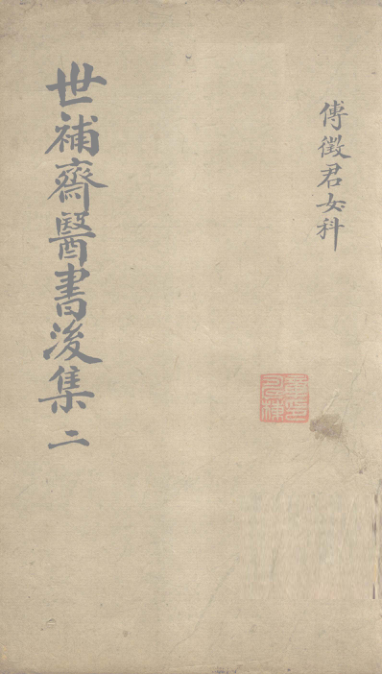 傅徵君女科
世補齋醫書後集 二